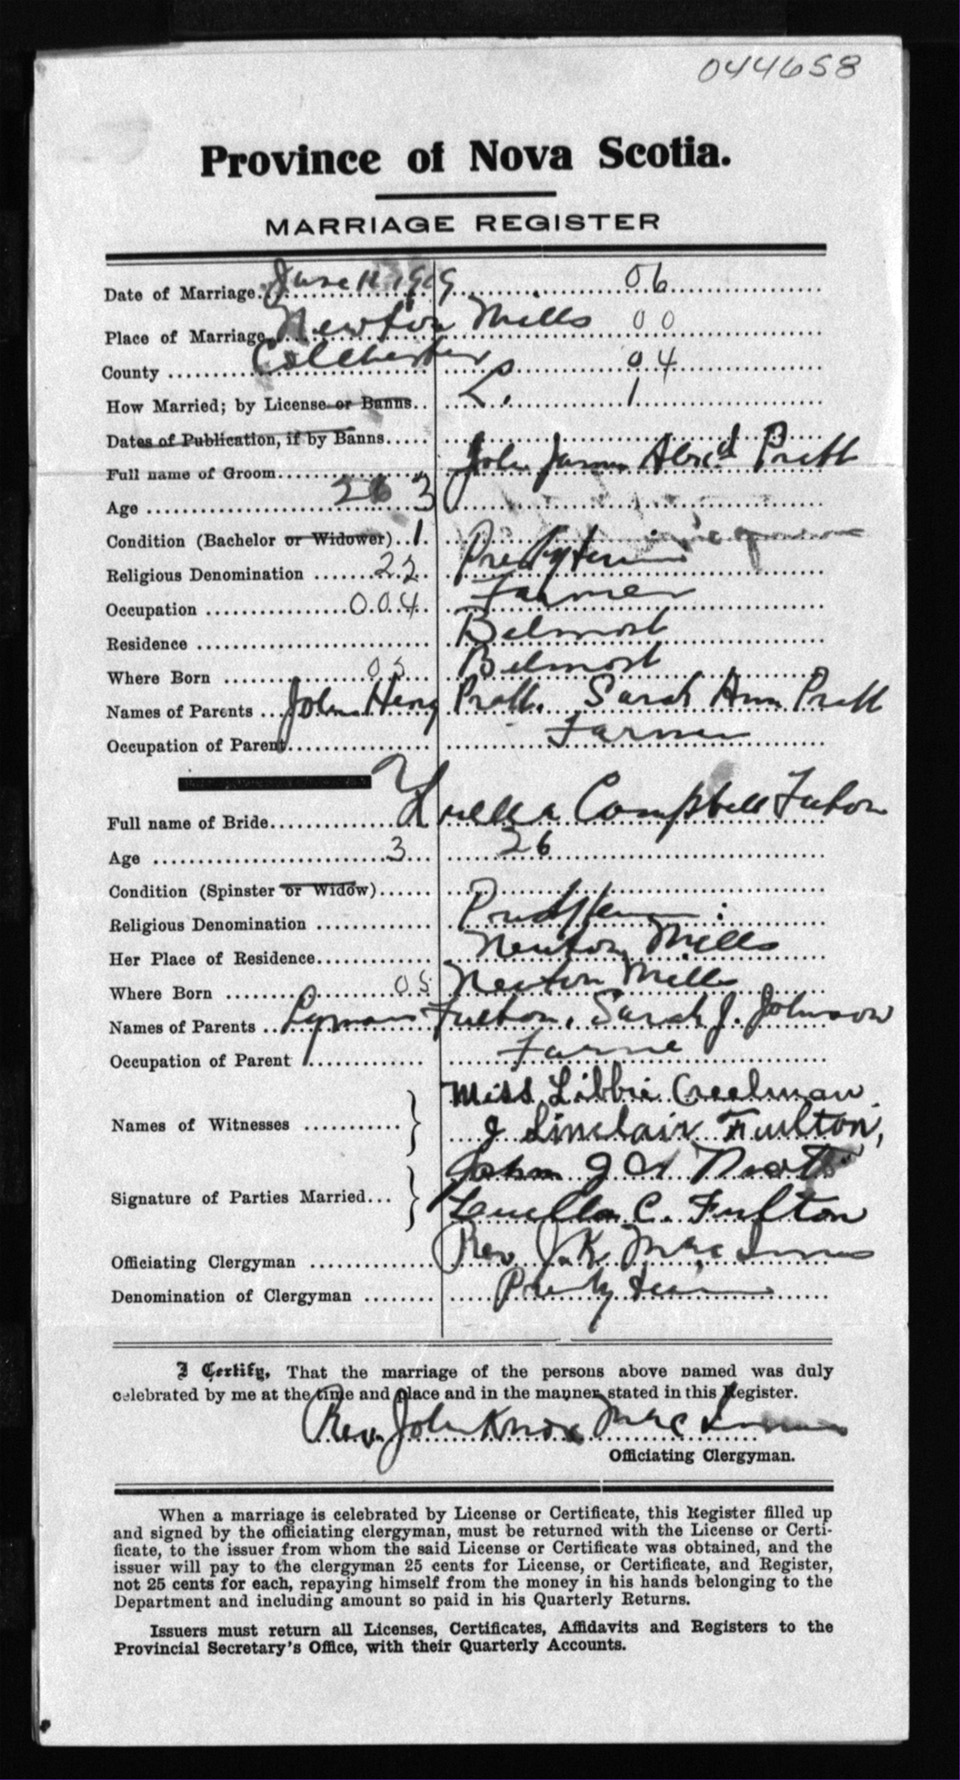 044658
Province of Nova Scotia.
MARRIAGE REGISTER
Date of Marriage. June 11 1919 06
Place of Marriage Newton Mills 00
County Colchester 04
How Married; by License or Banns.. L. 1
Dates of Publication, if by Banns.....
Full name of Groom John James Pratt
Age 26 3
Condition (Bachelor or Widower).. 1
Religious Denomination 22
Occupation 004 Farmer
Residence Belmont
Where Born 05 Belmont
Names of Parents John Henry Pratt. Sarah Ann Pratt
Occupation of Parent Farmer
Full name of Bride Luella Campbell Fulton
Age 3 26
Condition (Spinster or Widow)
Religious Denomination
Her Place of Residence Newton Mills
Where Born 05 Newton Mills
Names of Parents Lyman Fulton, Sarah J. Johnson
Occupation of Parent
Names of Witnesses Miss Libbie Creelman
J Sinclair Fulton,
Signature of Parties Married... John J A Pratt
Luella C. Fulton
Officiating Clergyman Rev. J. K. MacInnes
Denomination of Clergyman
I Certify, That the marriage of the persons above named was duly
celebrated by me at the time and place and in the manner stated in this Register.
Rev. John Knox MacInnes
Officiating Clergyman.
When a marriage is celebrated by License or Certificate, this Register filled up
and signed by the officiating clergyman, must be returned with the License or Certi-
ficate, to the issuer from whom the said License or Certificate was obtained, and the
issuer will pay to the clergyman 25 cents for License, or Certificate, and Register,
not 25 cents for each, repaying himself from the money in his hands belonging to the
Department and including amount so paid in his Quarterly Returns.
Issuers must return all Licenses, Certificates, Affidavits and Registers to the
Provincial Secretary's Office, with their Quarterly Accounts.